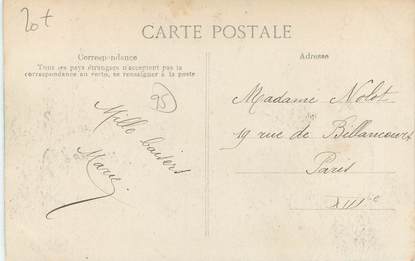 20+
CARTE POSTALE
Correspondance
Tous les pays étrangers n'acceptent pas la
correspondance au verso, se renseigner à la poste
95
Mille baisers
Marie
Adresse
Madame Nolot
19 rue de Billancourt
Paris
XIIIe